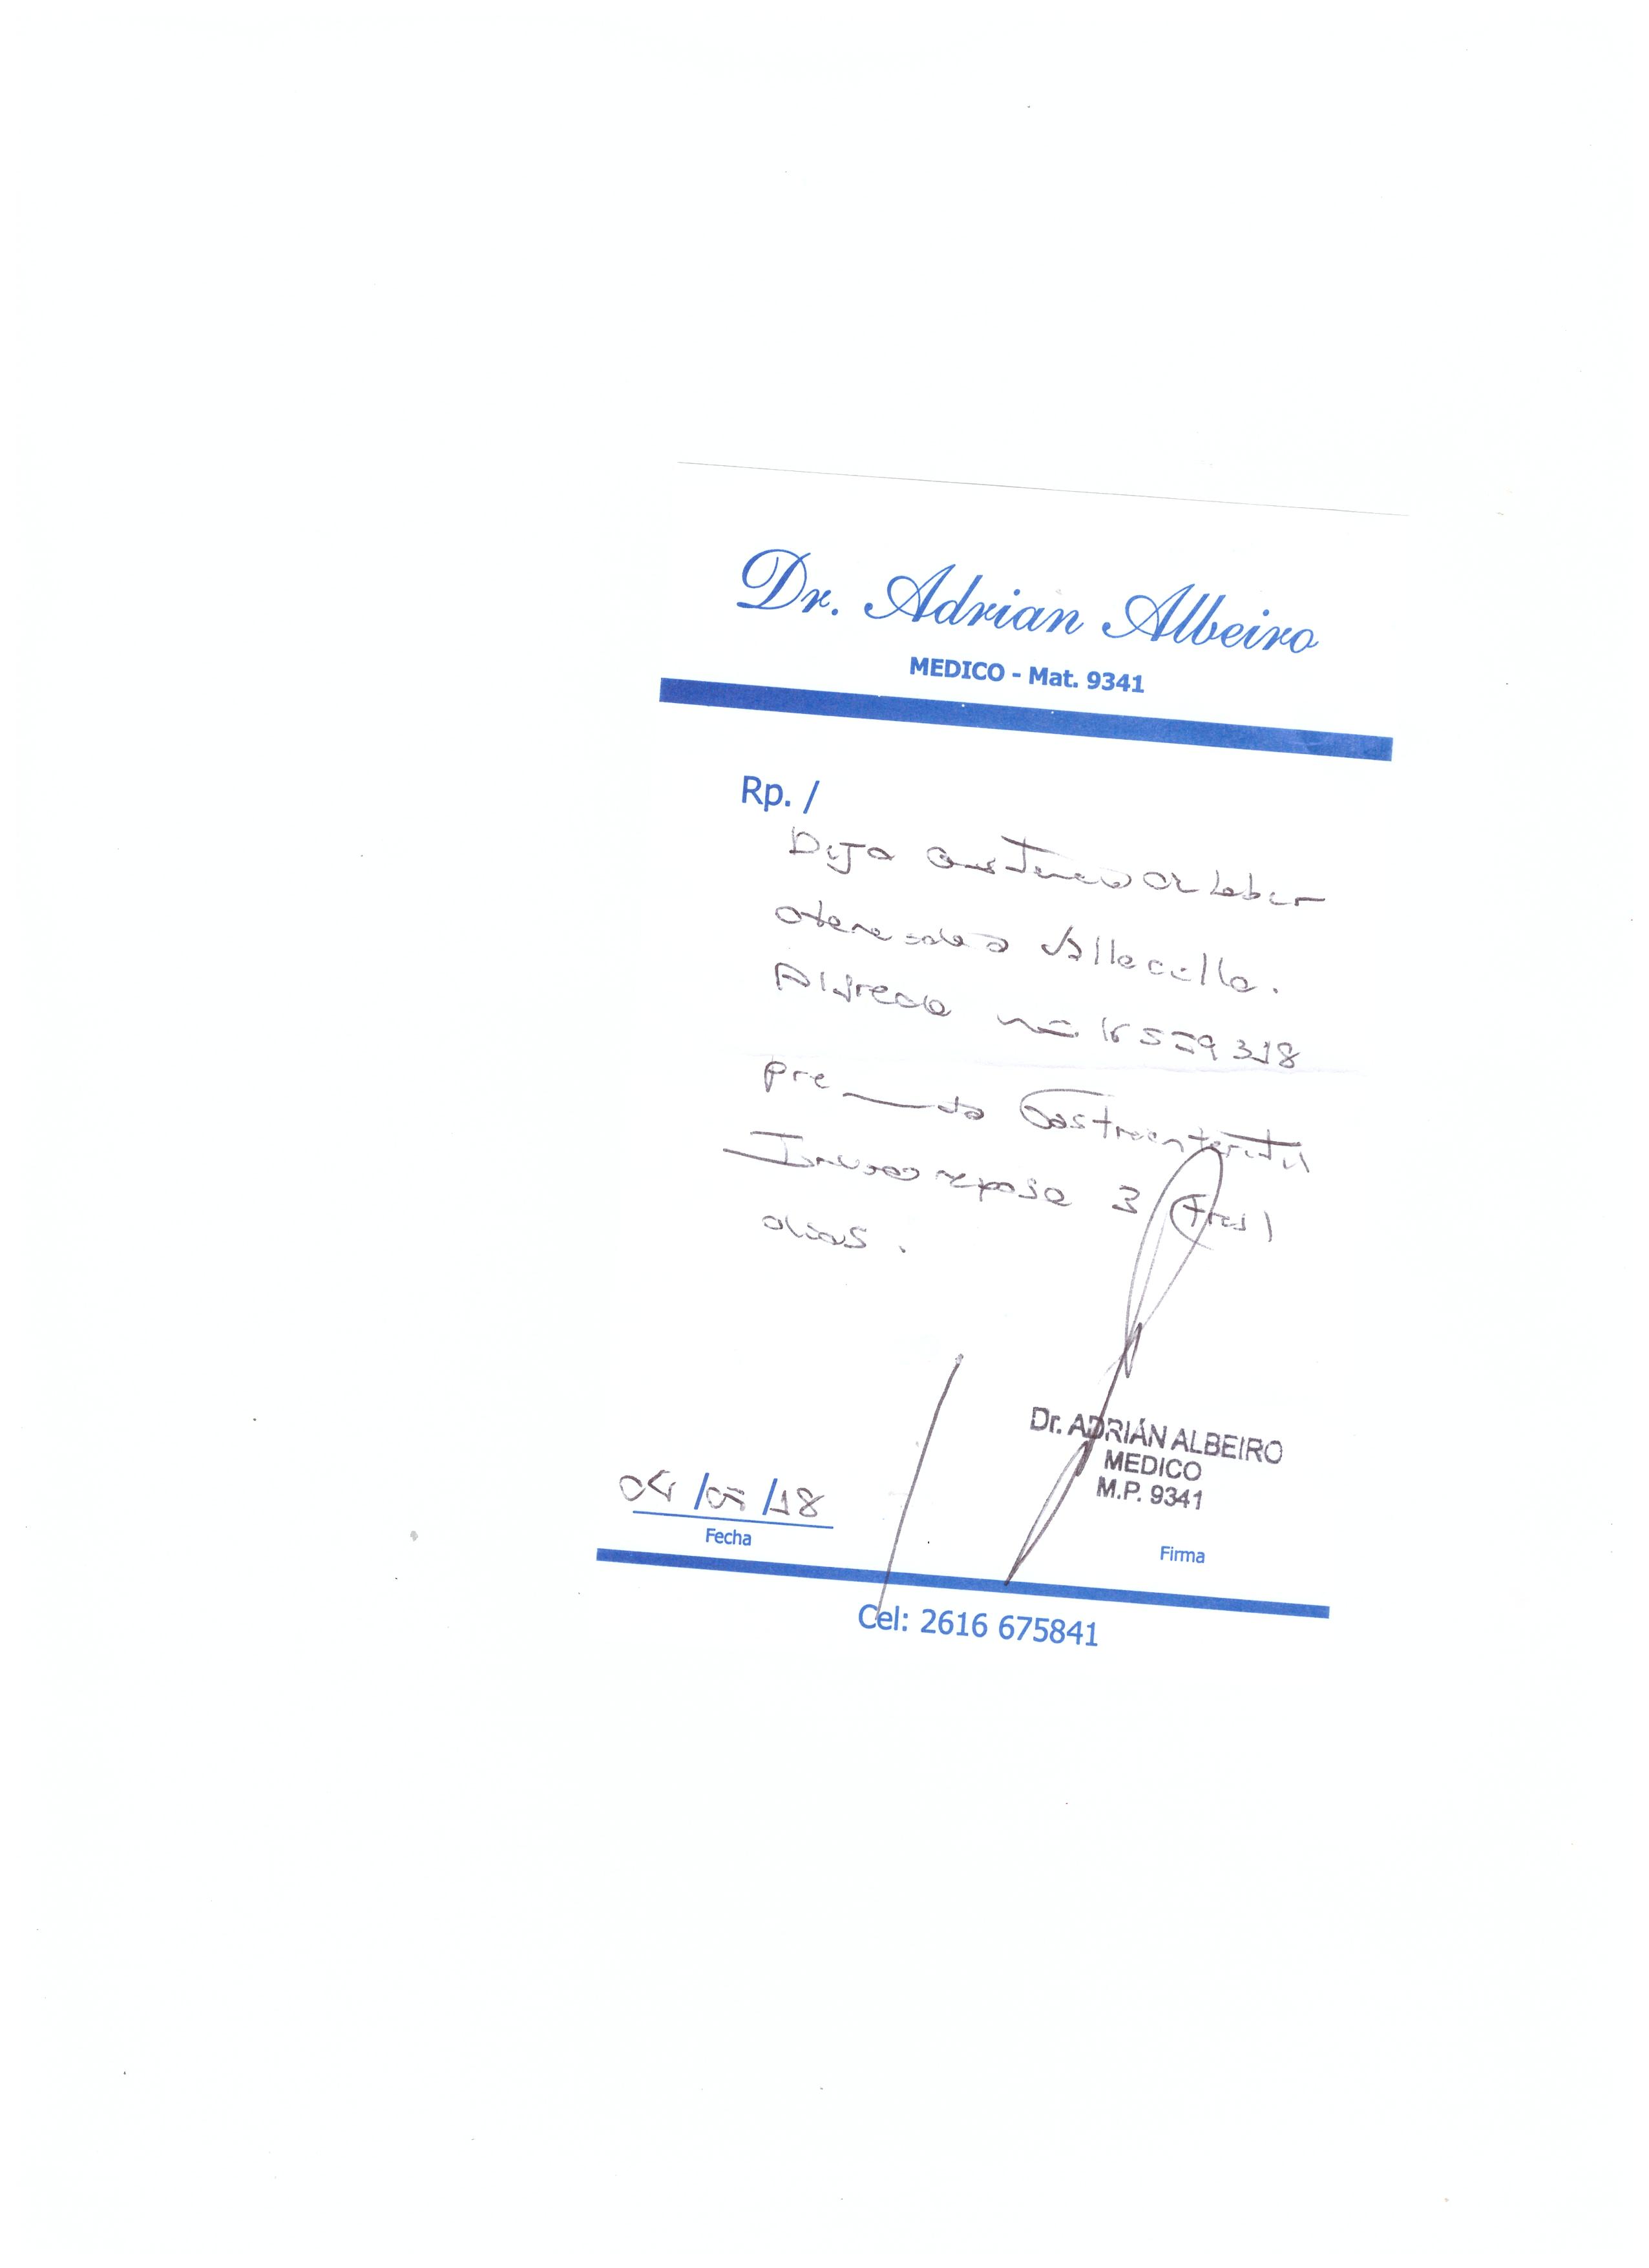 Dr. Adrian Albeiro
MEDICO - Mat. 9341
Rp. /
Dejo constancia de haber
atendido a
Alfredo 318
Gastroenteritis
reposo 3 (tres)
días.
Dr. ADRIÁN ALBEIRO
MEDICO
M.P. 9341
04/05/18
Fecha
Firma
Cel: 2616 675841